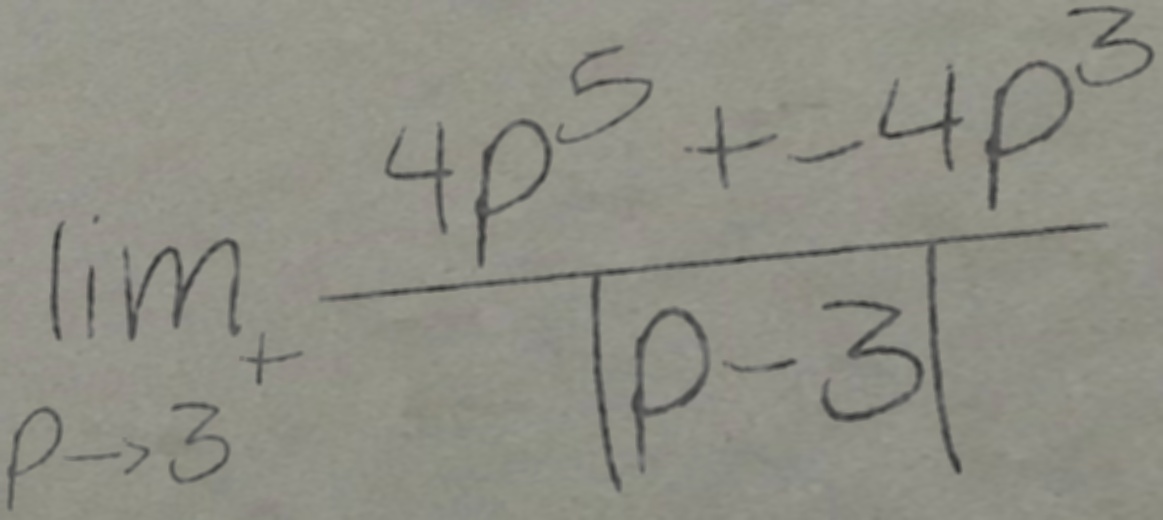 lim p→3⁺ (4p⁵ + -4p³) / |p-3|